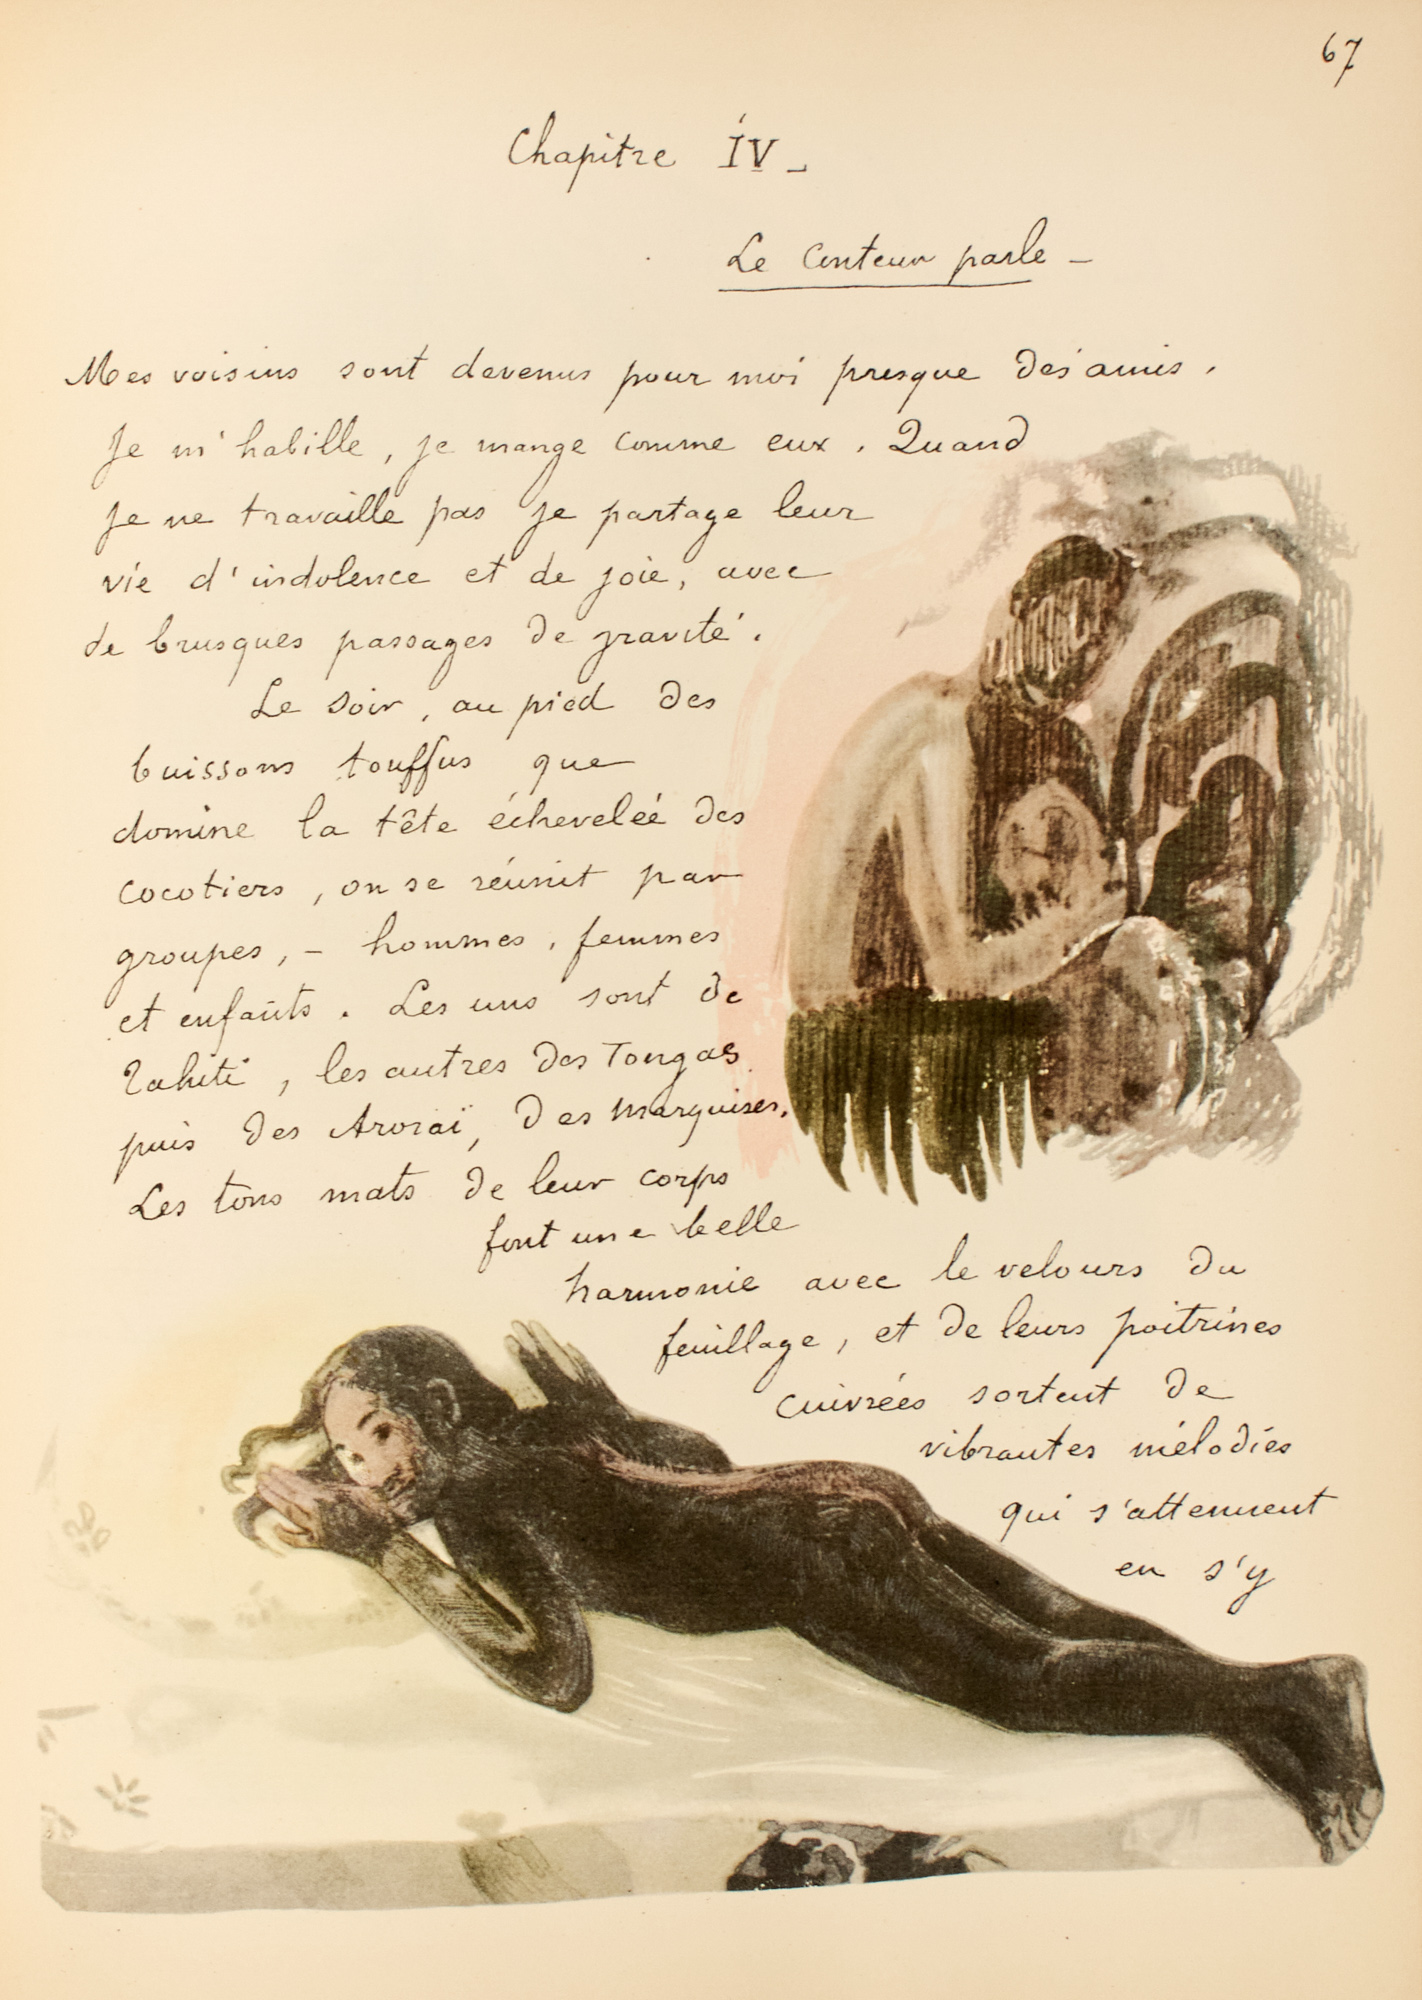 67
Chapitre IV -
Le Conteur parle -
Mes voisins sont devenus pour moi presque des amis.
Je m'habille, je mange comme eux. Quand
je ne travaille pas je partage leur
vie d'indolence et de joie, avec
de brusques passages de gravité.
Le soir, au pied des
buissons touffus que
domine la tête écheveléé des
cocotiers, on se réunit par
groupes, - hommes, femmes
et enfants. Les uns sont de
Tahiti, les autres des Tongas
puis des Aroraï, des Marquises.
Les tons mats de leur corps
font une belle
harmonie avec le velours du
feuillage, et de leurs poitrines
cuivrées sortent de
vibrantes mélodies
qui s'attenuent
en s'y